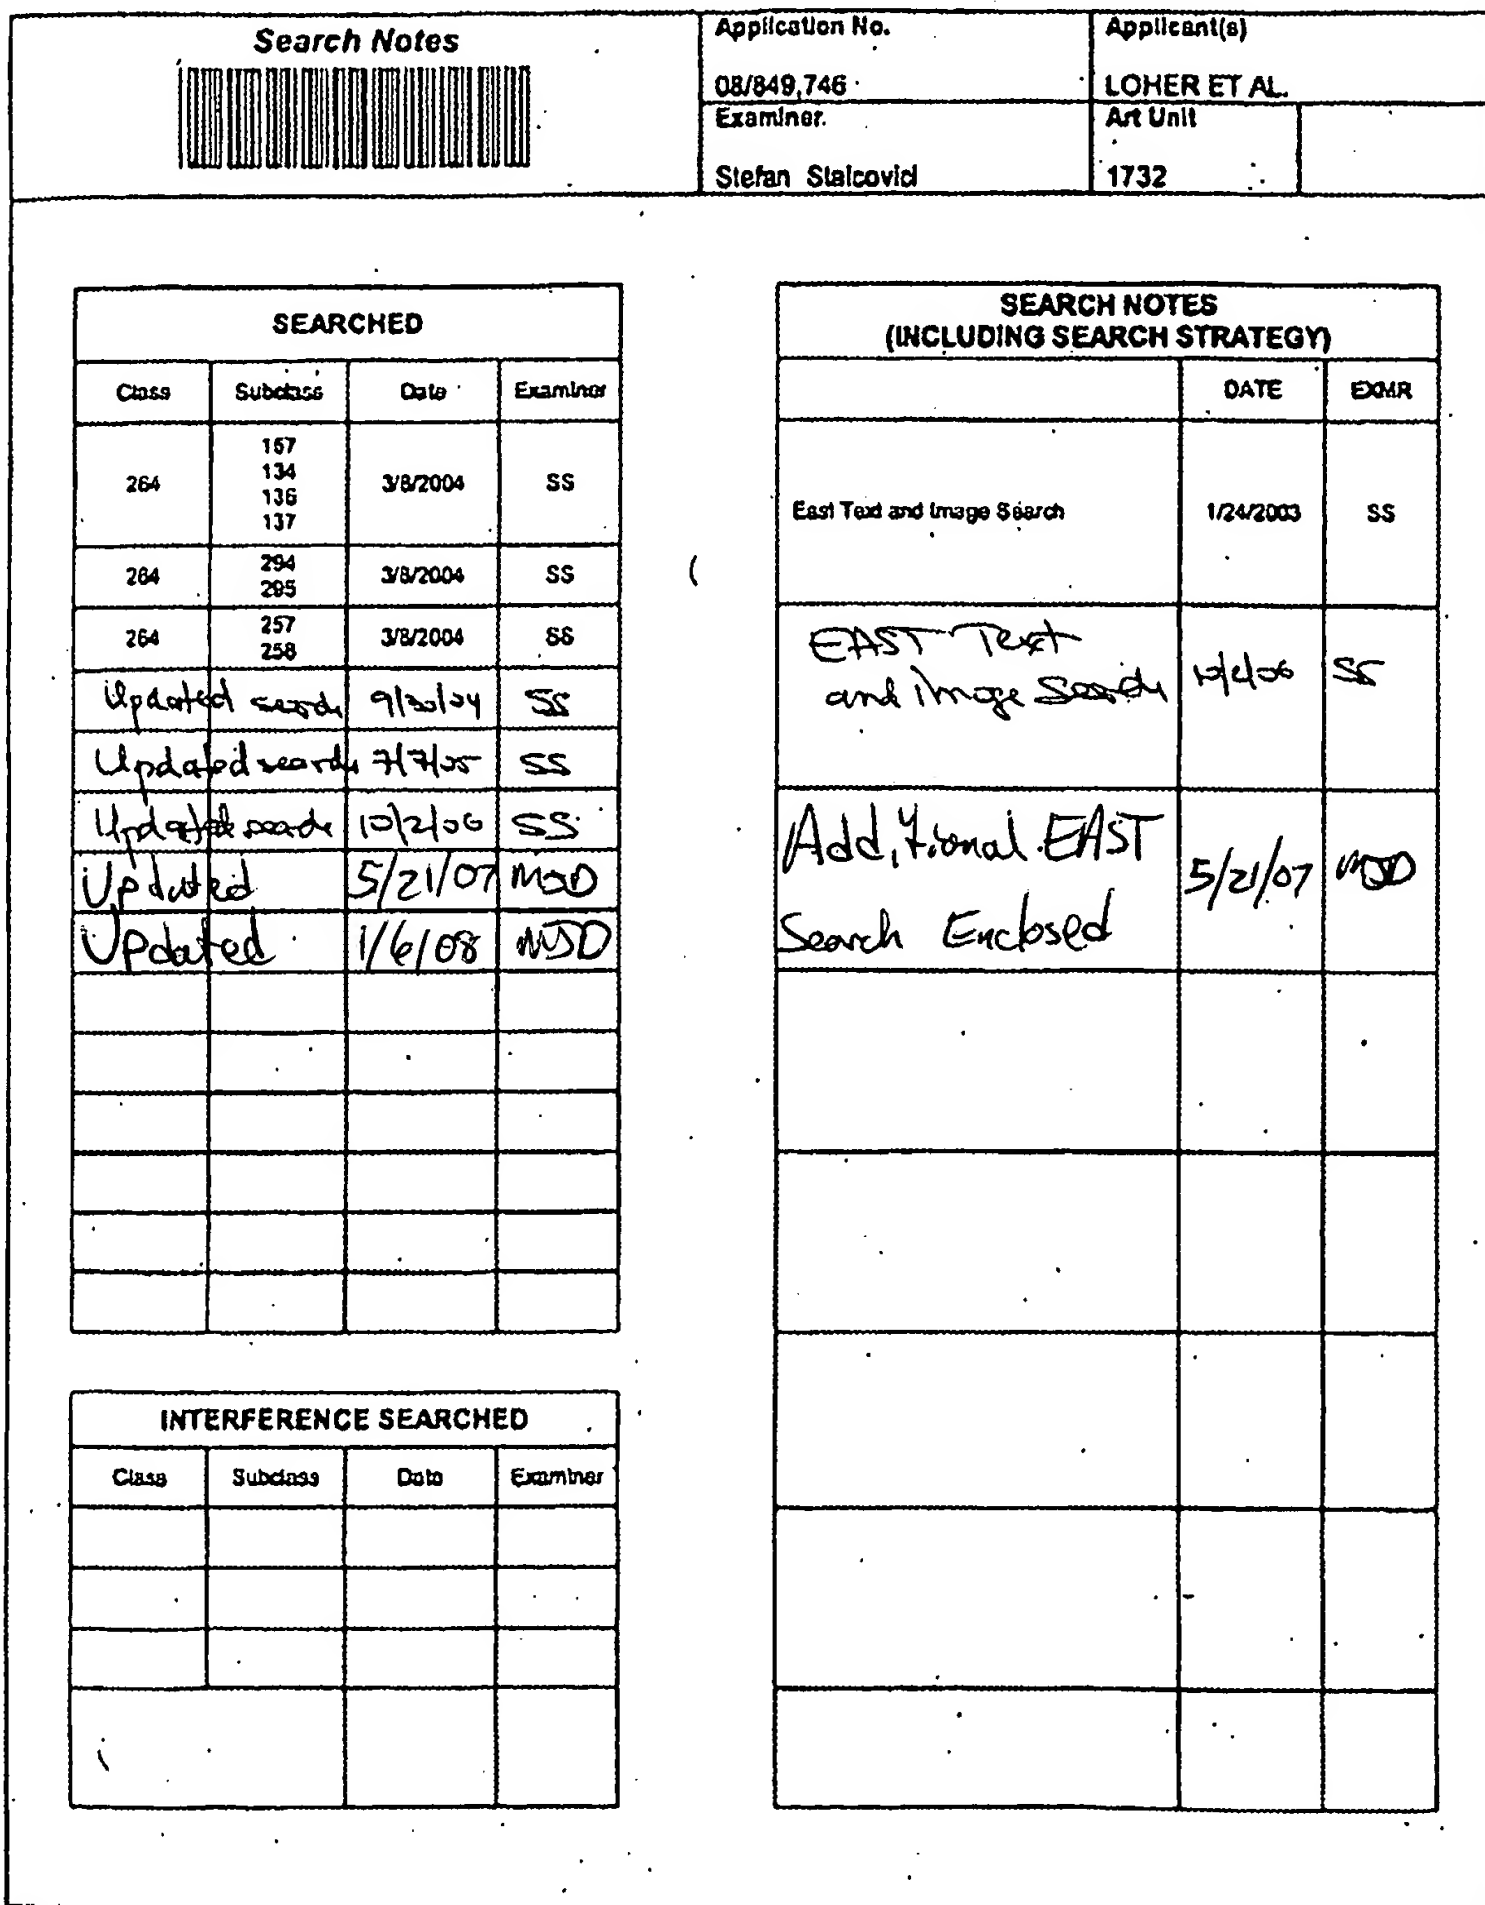 Search Notes
Application No.
08/849,746
Applicant(s)
LOHER ET AL.
Examiner
Stefan Staicovici
Art Unit
1732
SEARCHED
Class Subclass Date Examiner
264 167 134 136 137 3/8/2004 SS
264 294 295 3/8/2004 SS
264 257 258 3/8/2004 SS
Updated search 9/30/04 SS
Updated search 7/7/05 SS
Updated search 10/2/06 SS
Updated 5/21/07 MJD
Updated 1/6/08 MJD
INTERFERENCE SEARCHED
Class Subclass Date Examiner
SEARCH NOTES
(INCLUDING SEARCH STRATEGY)
DATE EXMR
East Text and Image Search 1/24/2003 SS
EAST Text
and image Search SS
Additional EAST
Search Enclosed 5/21/07 MJD